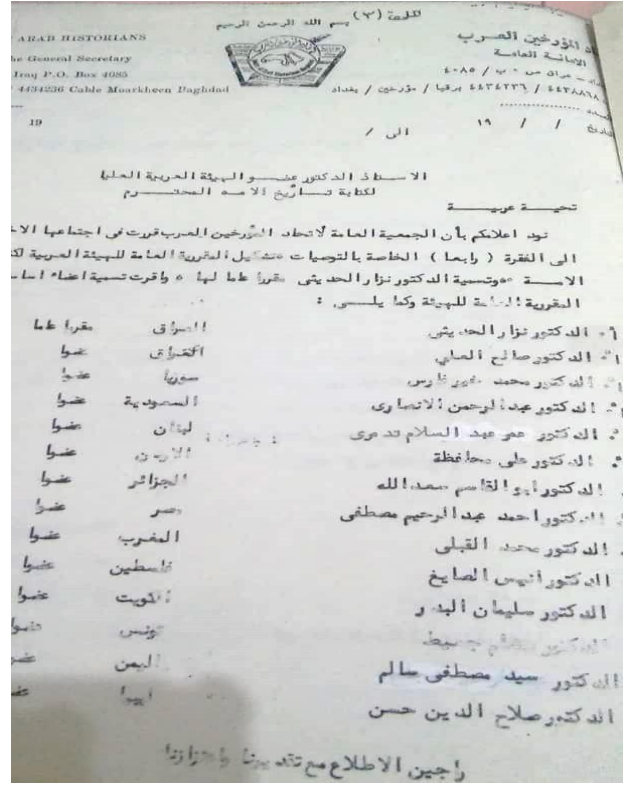 الملحق (٣)
بسم الله الرحمن الرحيم
ARAB HISTORIANS
he General Secretary
Iraq P.O. Box 4085
4434236 Cable Moarkheen Baghdad
19
د المؤرخين العرب
الامانة العامة
عراق ص ٠ ب / ٤٠٨٥
٤٤٣٨٨٦٨ / ٤٤٣٤٢٣٦ برقيا / مؤرخين / بغداد
التاريخ / / ١٩
الى /
الاستاذ الدكتور عضو الهيئة العربية العليا
لكتابة تاريخ الامة المحترم
تحية عربية
نود اعلامكم بأن الجمعية العامة لاتحاد المؤرخين العرب قررت في اجتماعها الا
الى الفقرة ( رابعا ) الخاصة بالتوصيات تشكيل المقررية العامة للهيئة العربية لكت
الامة وتسمية الدكتور نزار الحديثى مقررا عاما لها ، واقرت تسمية اعضاء
المقررية العامة للهيئة وكما يلى :
الدكتور نزار الحديثى العراق مقررا عاما
الدكتور صالح العلي العراق عضوا
الدكتور محمد خير فارس سوريا عضوا
الدكتور عبدالرحمن الانصارى السعودية عضوا
الدكتور عمر عبد السلام تدمرى لبنان عضوا
الدكتور على محافظة الاردن عضوا
الدكتور ابو القاسم سعدالله الجزائر عضوا
الدكتور احمد عبدالرحيم مصطفى مصر عضوا
الدكتور محمد القبلى المغرب عضوا
الدكتور انيس الصايغ فلسطين عضوا
الدكتور سليمان البدر الكويت عضوا
الدكتور تونس عضوا
الدكتور سيد مصطفى سالم اليمن عضو
الدكتور صلاح الدين حسن ليبيا عضو
راجين الاطلاع مع تقديرنا واعتزازنا